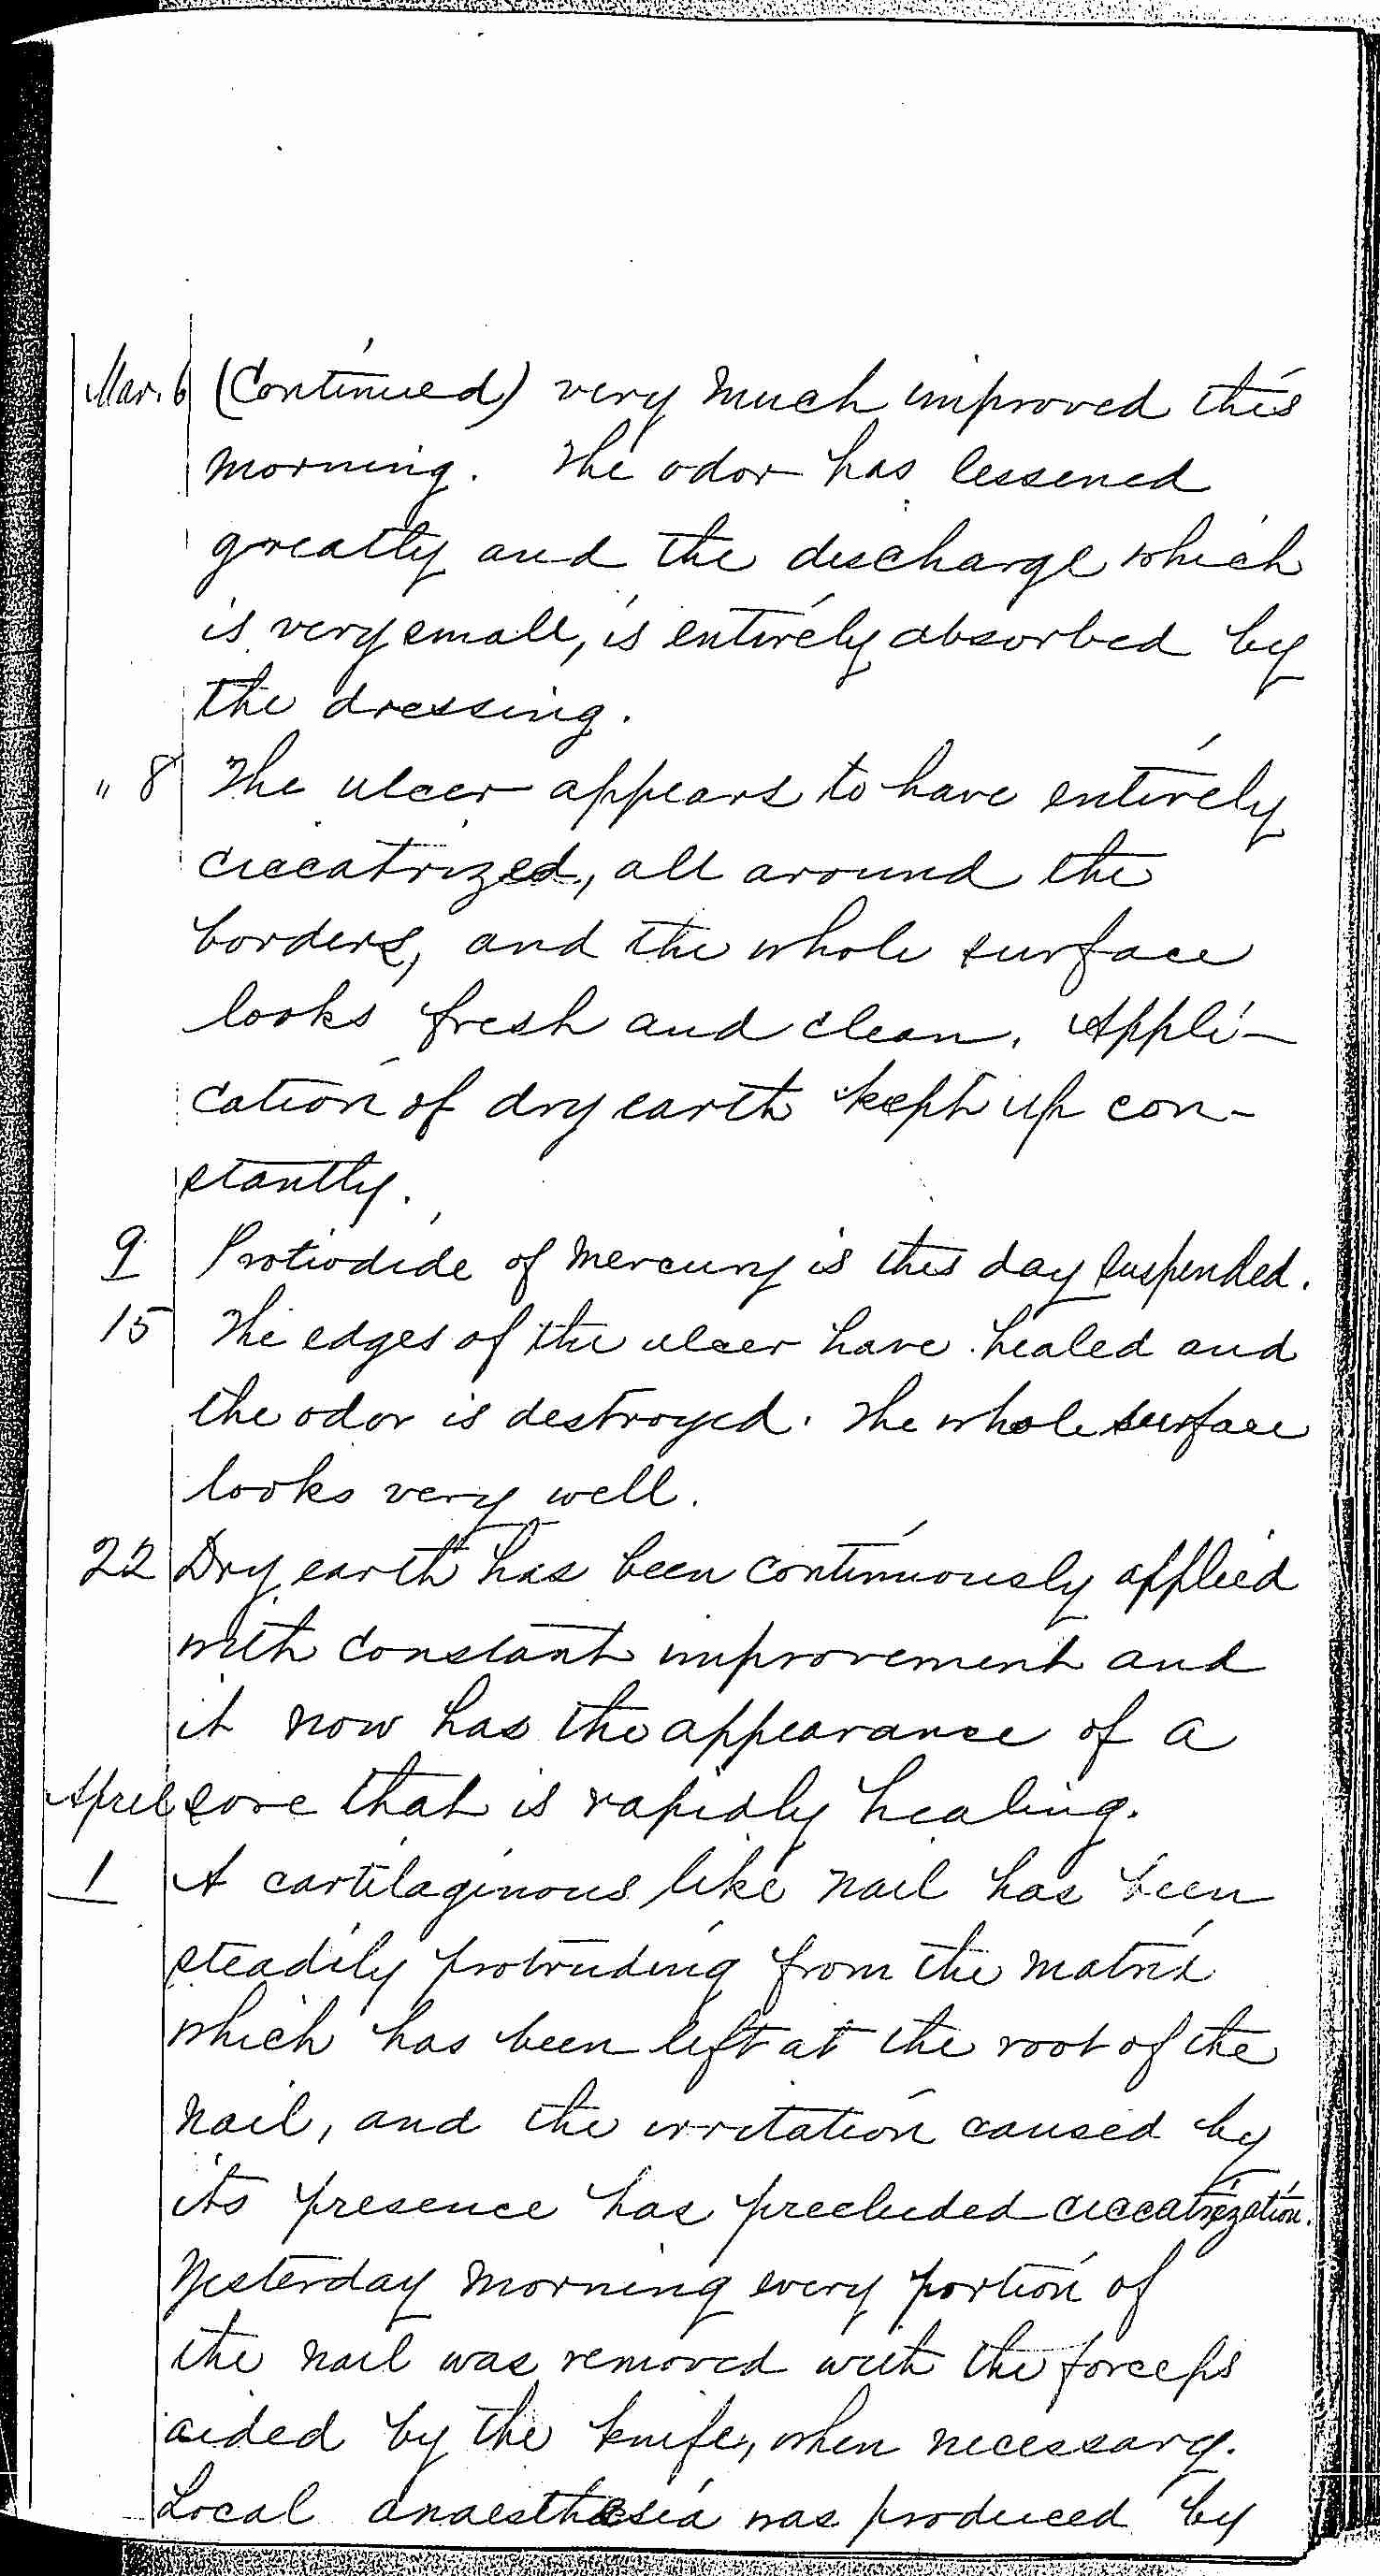 Mar. 6 (Continued) very much improved this
morning. The odor has lessened
greatly and the discharge which
is very small, is entirely absorbed by
the dressing.
" 8 The ulcer appears to have entirely
cicatrized, all around the
borders, and the whole surface
looks fresh and clean. Appli-
cation of dry earth kept up con-
stantly.
9 Protiodide of Mercury is this day suspended.
15 The edges of the ulcer have healed and
the odor is destroyed. The whole surface
looks very well.
22 Dry earth has been continuously applied
with constant improvement and
it now has the appearance of a
April sore that is rapidly healing.
1 A cartilaginous like nail has been
steadily protruding from the matrix
which has been left at the root of the
nail, and the irritation caused by
its presence has precluded cicatrization.
Yesterday morning every portion of
the nail was removed with the forceps
aided by the knife, when necessary.
Local anaesthesia was produced by